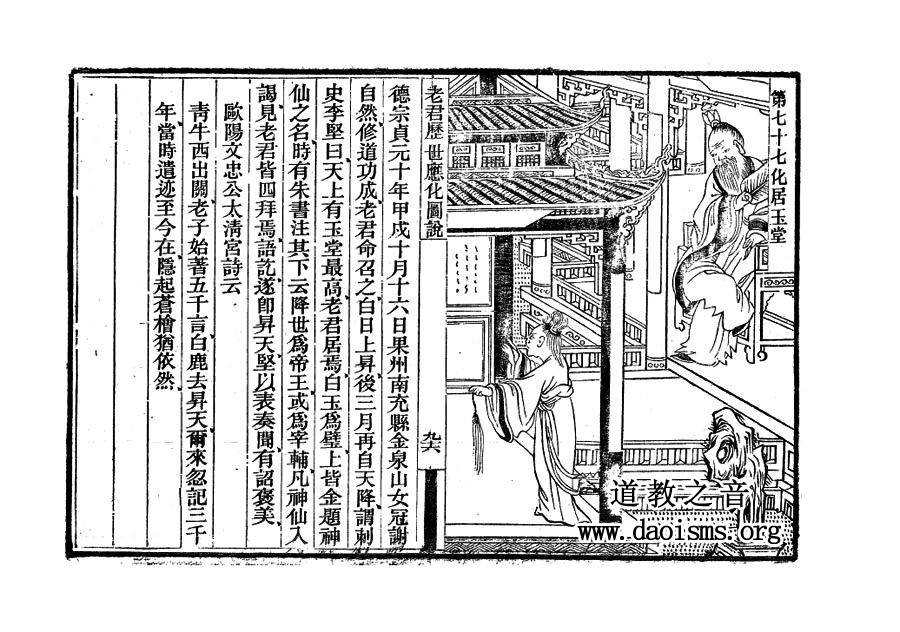 第七十七化居玉堂
老君歷世應化圖說
九六
德宗貞元十年甲戌十月十六日果州南充縣金泉山女冠謝
自然修道功成老君命召之白日上昇後三月再自天降謂刺
史李堅曰天上有玉堂最高老君居焉白玉爲璧上皆金題神
仙之名時有朱書注其下云降世爲帝王或爲宰輔凡神仙入
謁見老君皆四拜焉語訖遂卽昇天堅以表奏聞有詔褒美
歐陽文忠公太淸宮詩云
靑牛西出關老子始著五千言白鹿去昇天爾來忽記三千
年當時遺迹至今在隱起蒼檜猶依然
道教之音
www.daoisms.org